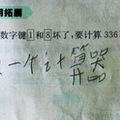 用拓展
数字键1和8坏了,要计算336
一个计算器